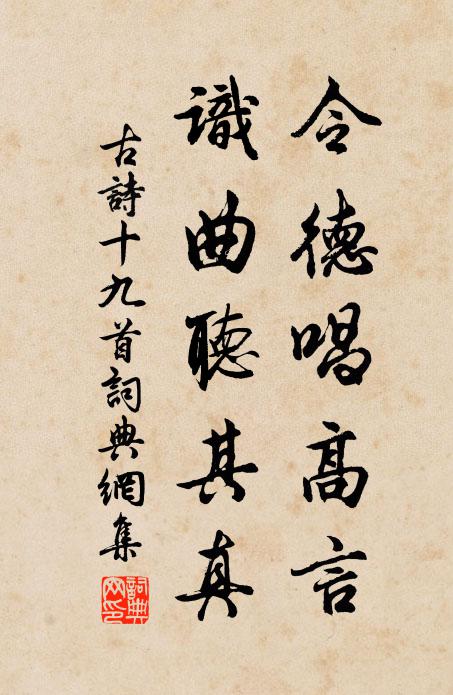 令德唱高言
識曲聽其真
古詩十九首詞典網集
詞典網印